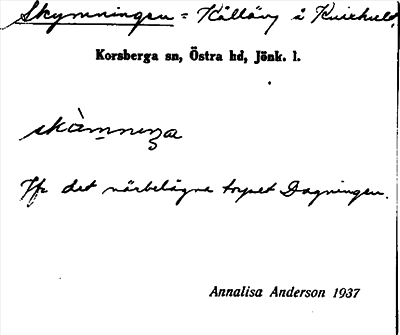 Skymningen = Källäng i Kvisehult,
Korsberga sn, Östra hd, Jönk. l.
skàmnıŋa
Jfr det närbelägna torpet Dagningen.
Annalisa Anderson 1937